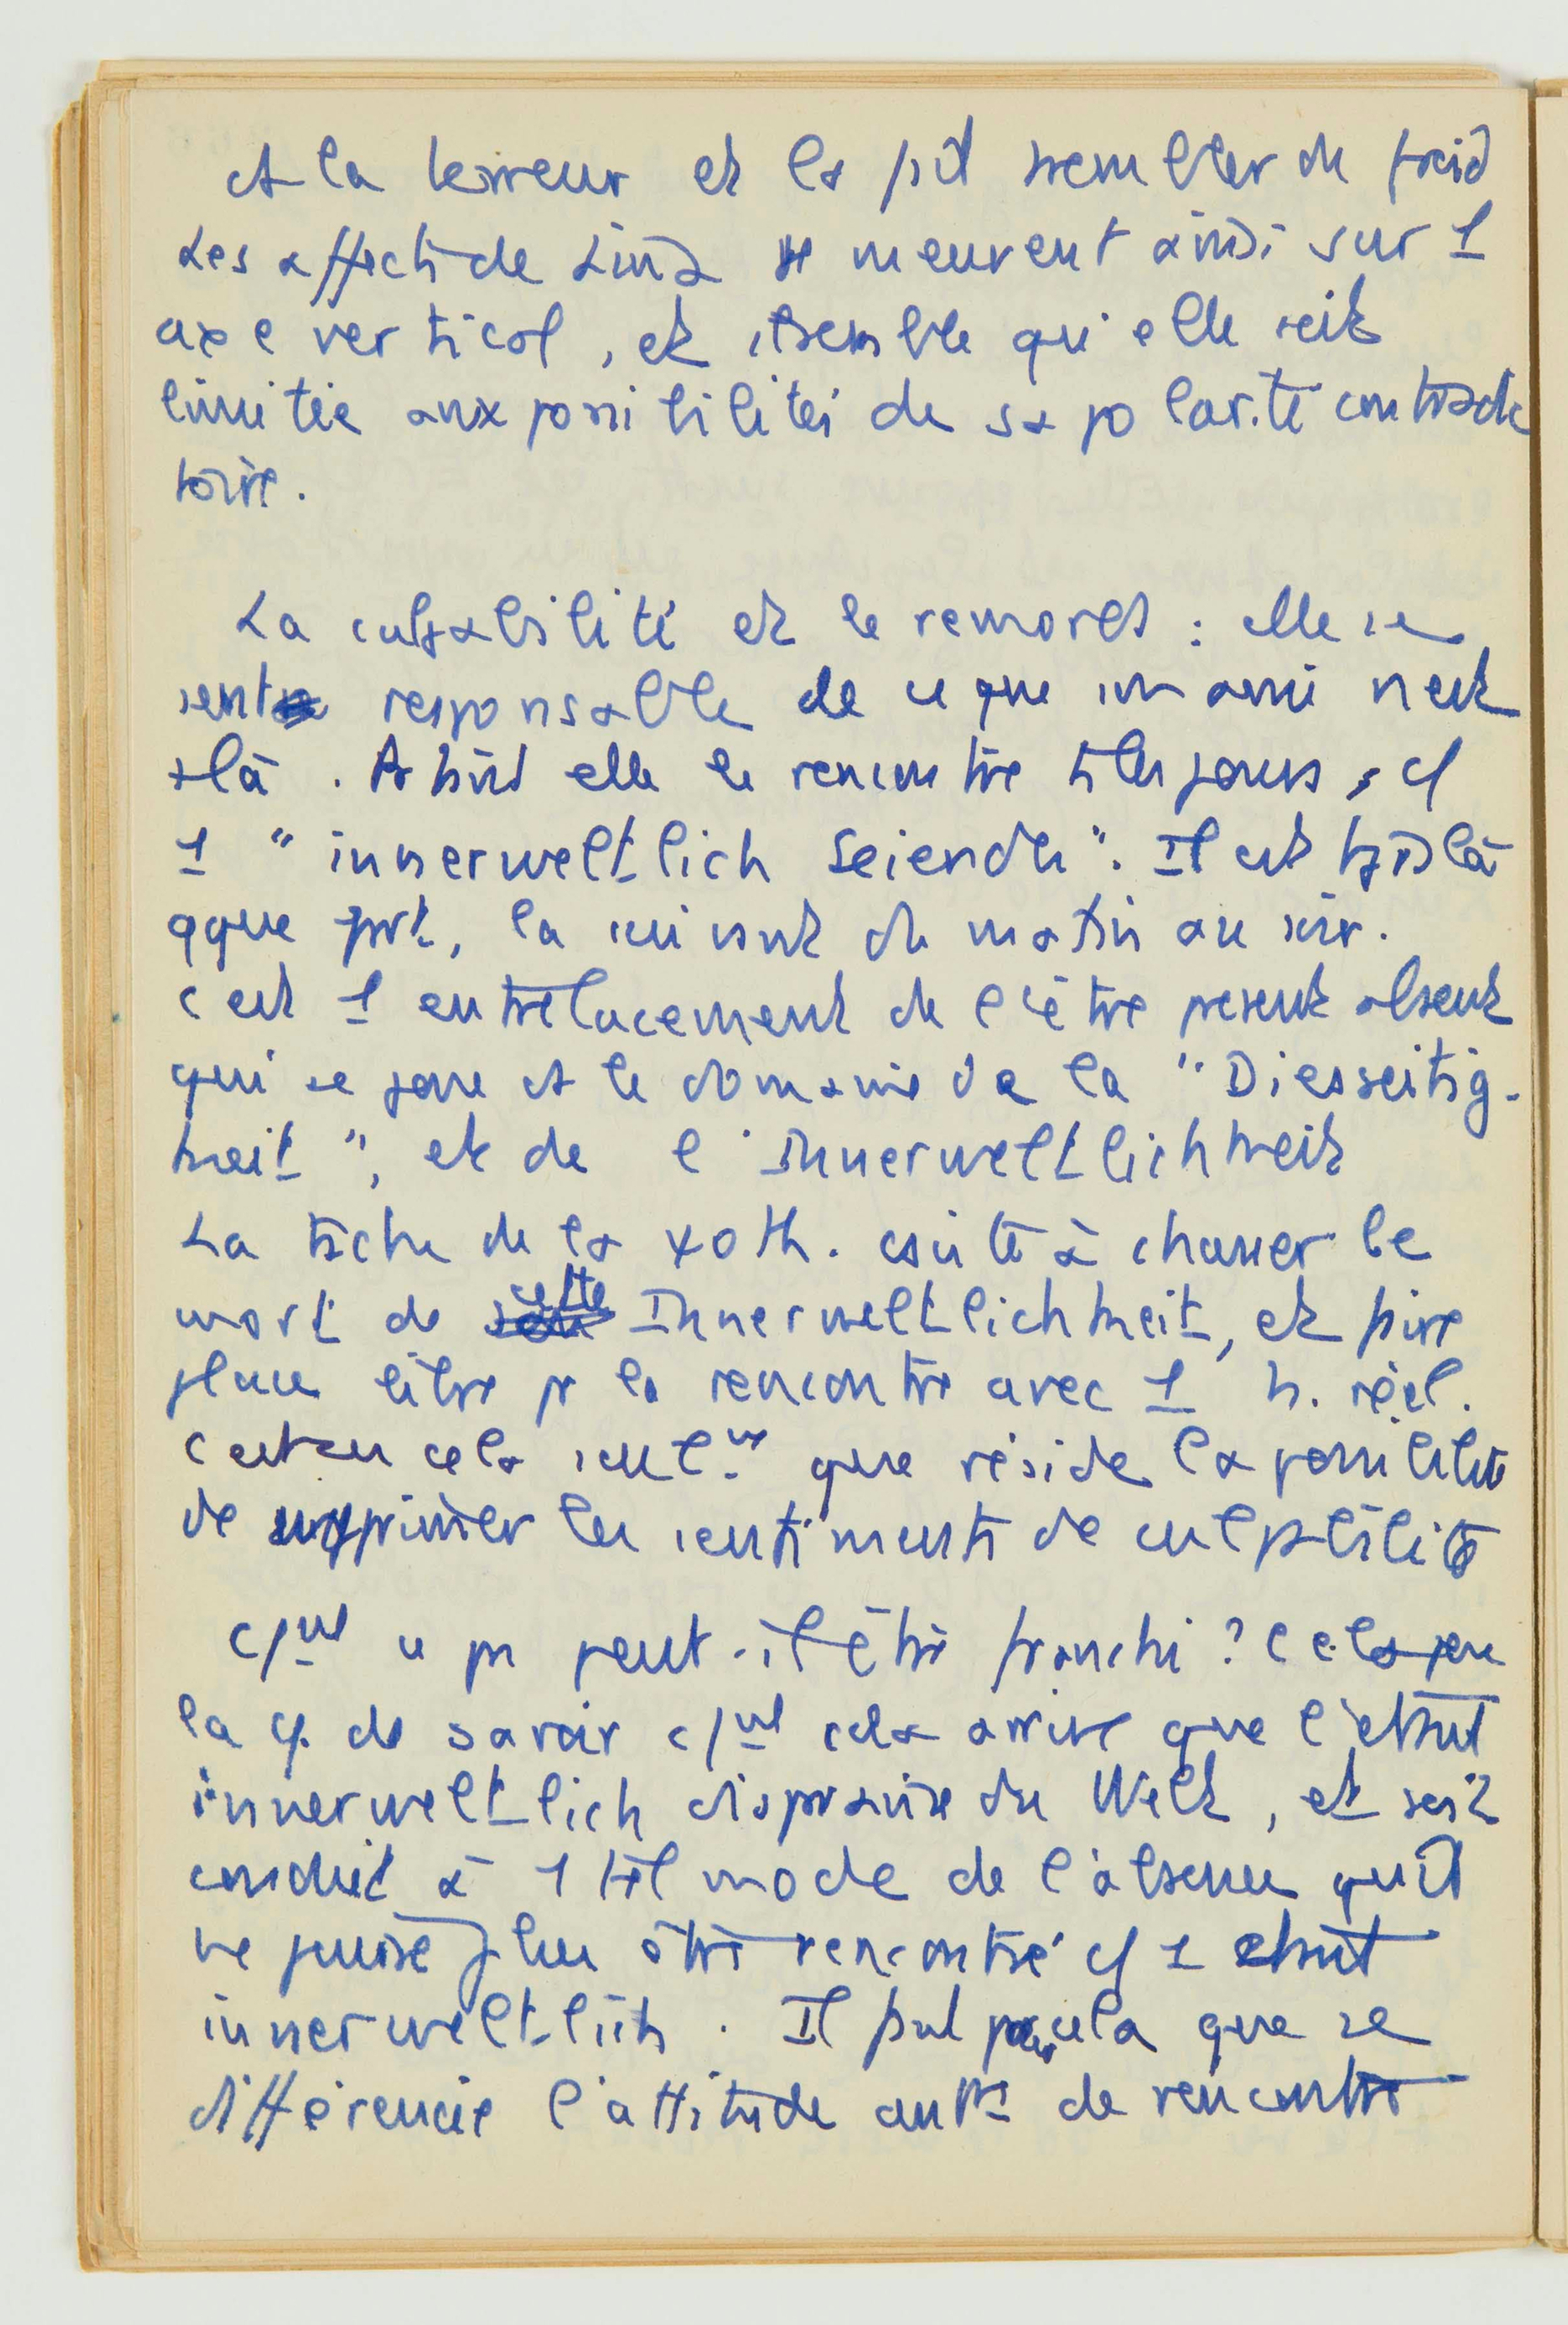 la terreur et la fait trembler de froid
Les affects de Linda se meuvent ainsi sur 1
axe vertical, et il semble qu'elle soit
limitée aux possibilités de sa polarité contradic
toire.
La culpabilité et le remords : elle se
sent responsable de ce que son ami n'est
+ là. elle le rencontre ts les jours, c/
1 "innerweltlich Seiendes". Il est tjs là
qque part, la suivant du matin au soir.
c'est 1 entrelacement de l'être présent absent
qui se joue ds le domaine de la "Diesseitig-
keit", et de l'Innerweltlichkeit
La tâche de la ψoth. consiste à chasser le
mort de cette Innerweltlichkeit, et faire
place libre pr la rencontre avec 1 h. réel.
c'est en cela seulnt que réside la possibilité
de supprimer les sentiments de culpabilité
c/nt ce pas peut-il être franchi ? Cela pose
la q. de savoir c/nt cela arrive que l'étant
innerweltlich disparaisse du Welt, et soit
conduit à 1 tel mode de l'absence qu'il
ne puisse plus être rencontré c/ 1 étant
innerweltlich. Il faut pour cela que se
différencie l'attitude de rencontre